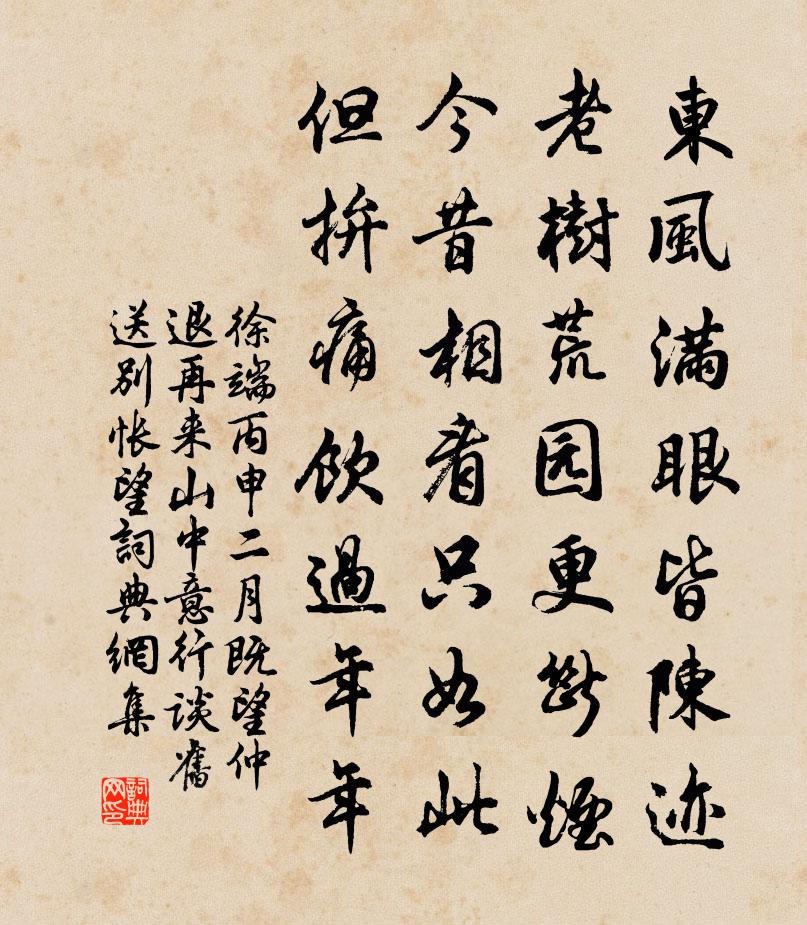 東風满眼皆陳迹
老樹荒园更斷煙
今昔相看只如此
但拚痛飲過年年
徐端丙申二月既望仲
退再来山中意行談舊
送别怅望詞典網集
詞典网印